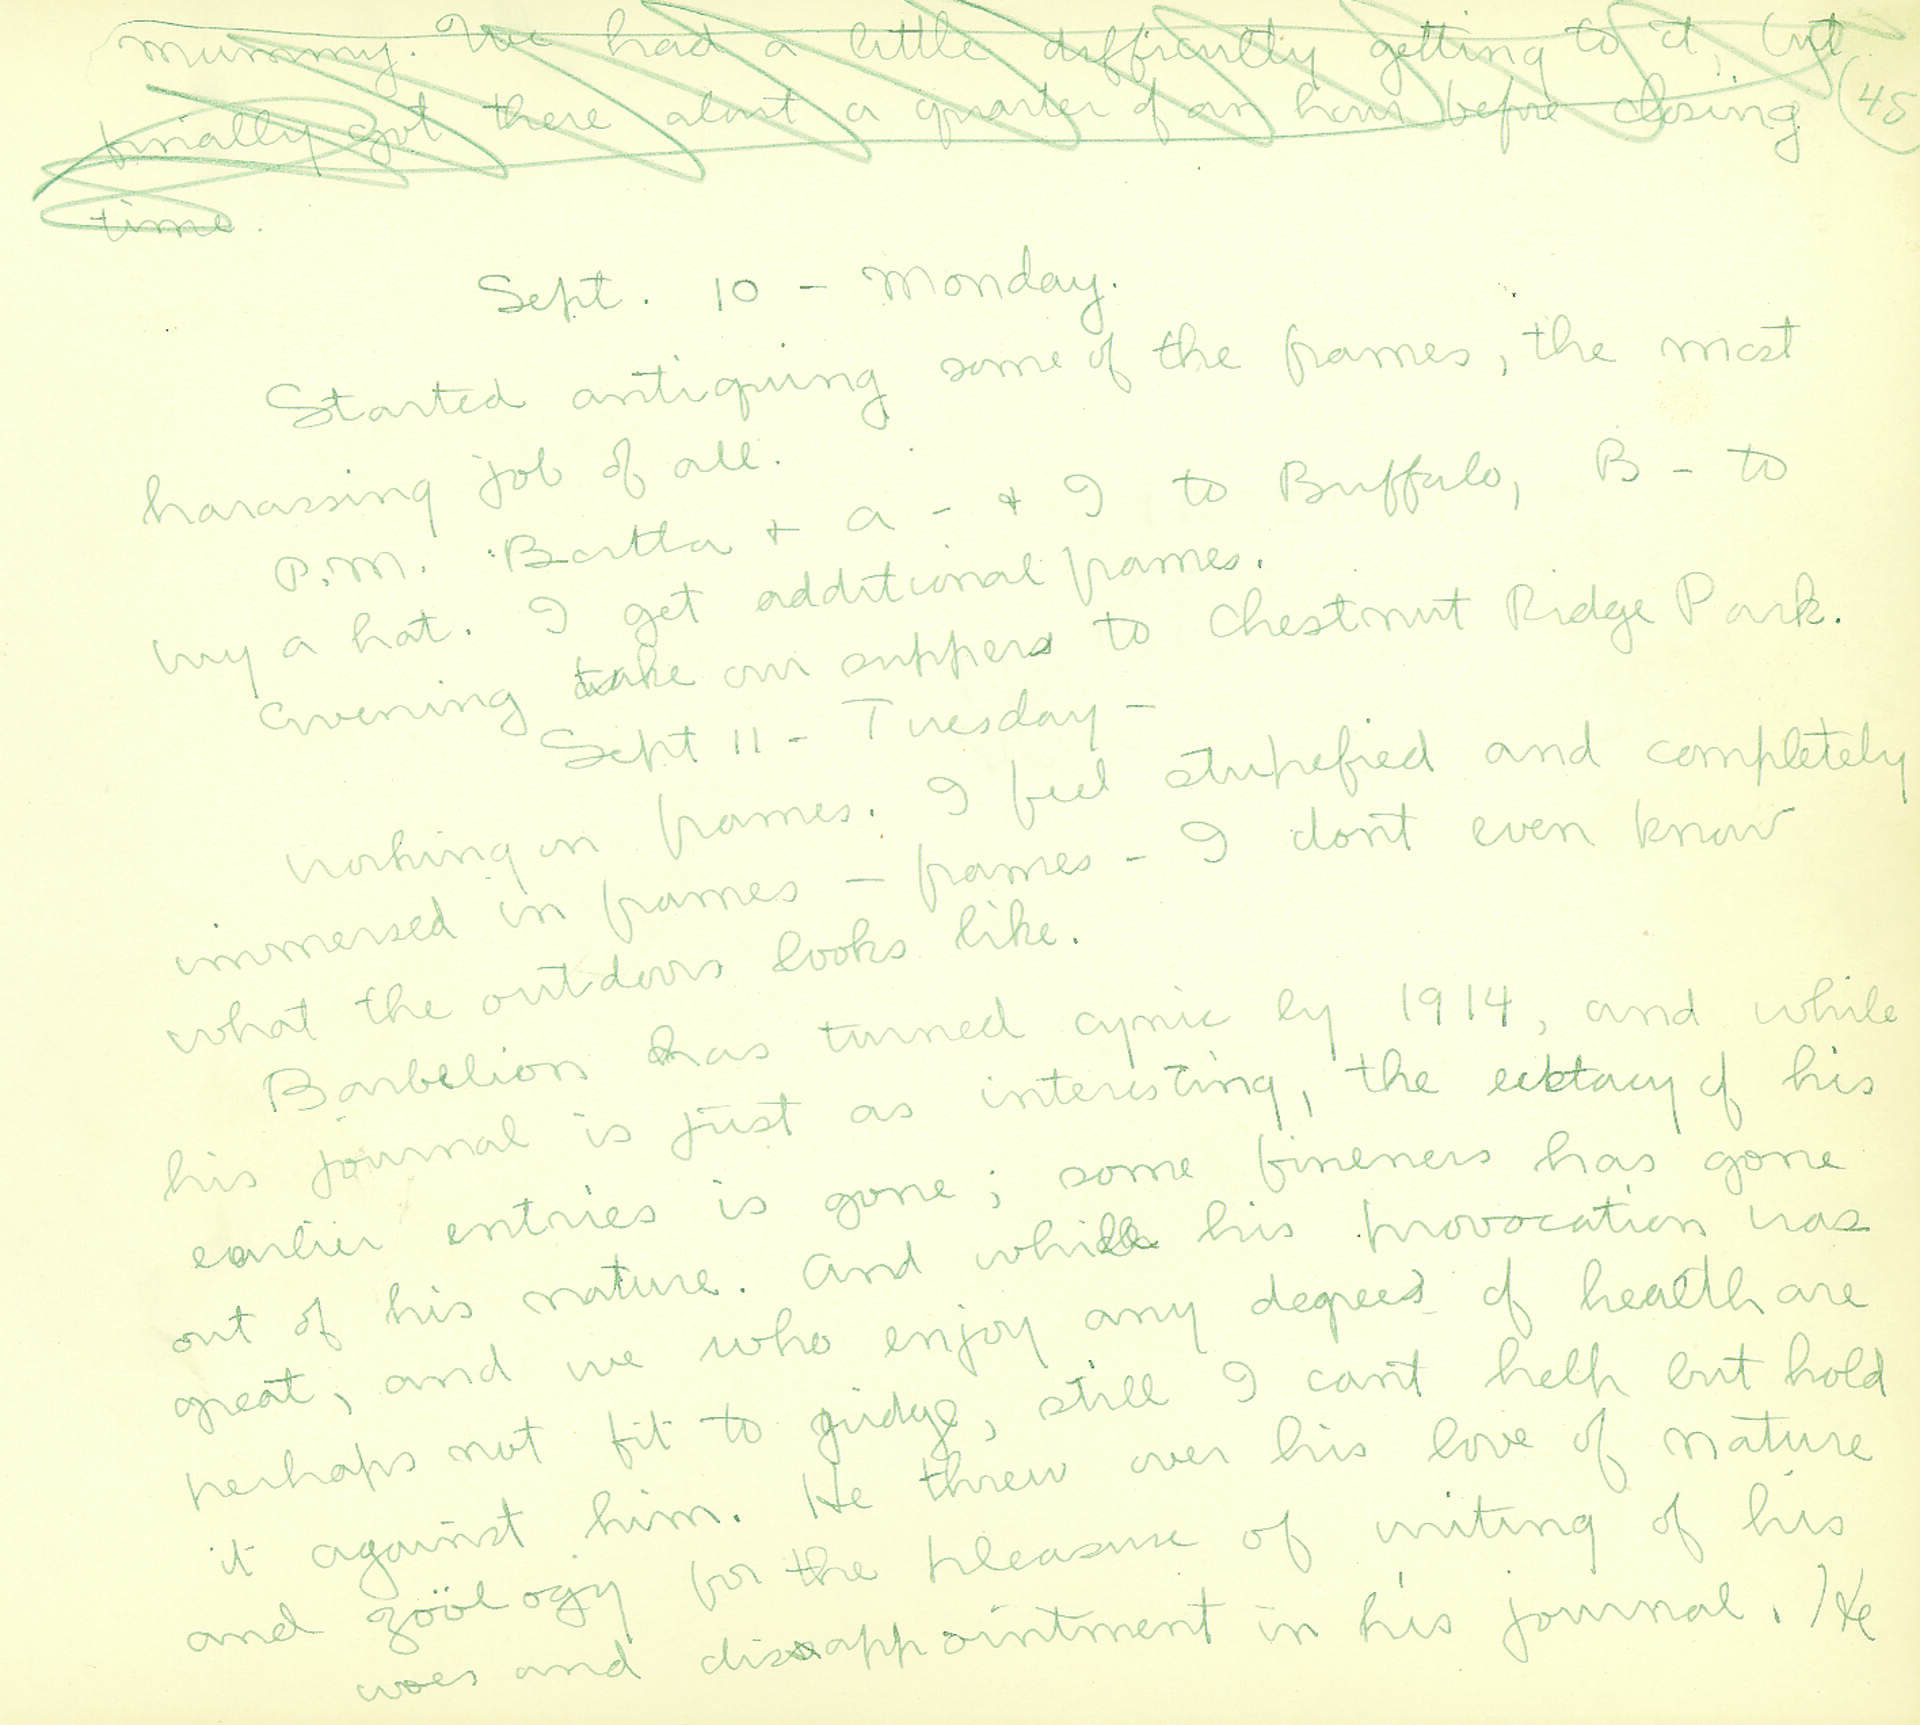 mummy. We had a little difficulty getting to it, but
finally got there about a quarter of an hour before closing
45
time.
Sept. 10 - Monday.
Started antiquing some of the frames, the most
harassing job of all.
P.M. Bertha + A - + I to Buffalo, B - to
buy a hat. I get additional frames.
Evening take our suppers to Chestnut Ridge Park.
Sept 11 - Tuesday -
Working on frames. I feel stupefied and completely
immersed in frames - frames - I don't even know
what the outdoors looks like.
Barbelion has turned cynic by 1914, and while
his journal is just as interesting, the ecstacy of his
earlier entries is gone; some fineness has gone
out of his nature. And while his provocation was
great, and we who enjoy any degree of health are
perhaps not fit to judge, still I can't help but hold
it against him. He threw over his love of nature
and zoölogy for the pleasure of writing of his
woes and disappointment in his journal. He